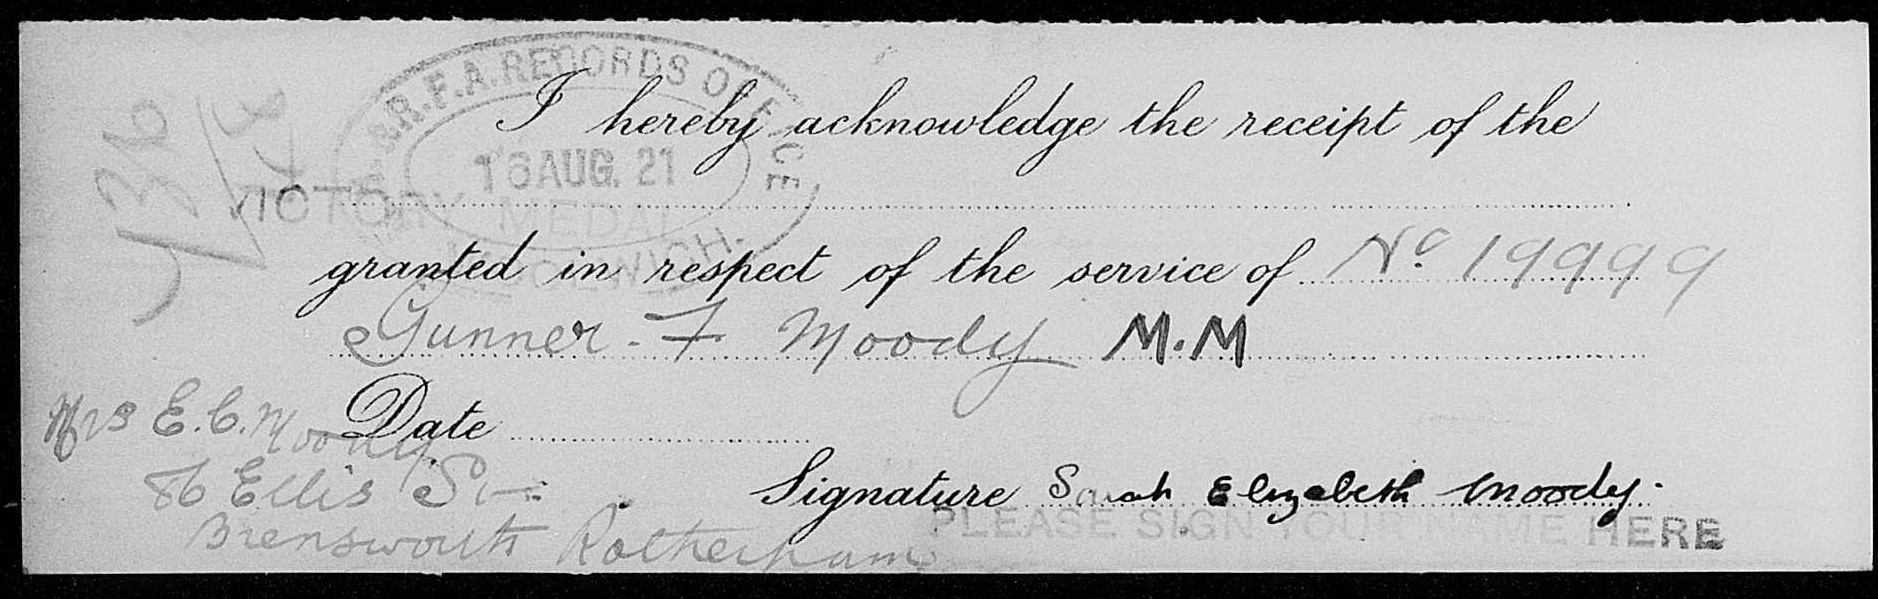 R.H. & R.F.A. RECORDS OFFICE
16 AUG. 21
WOOLWICH.
I hereby acknowledge the receipt of the
VICTORY MEDAL
granted in respect of the service of No. 19999
Gunner - F Moody M.M
Mrs E.C. Moody
Date
86 Ellis St
Signature Sarah Elizabeth Moody.
PLEASE SIGN YOUR NAME HERE
Brensworth Rotherham